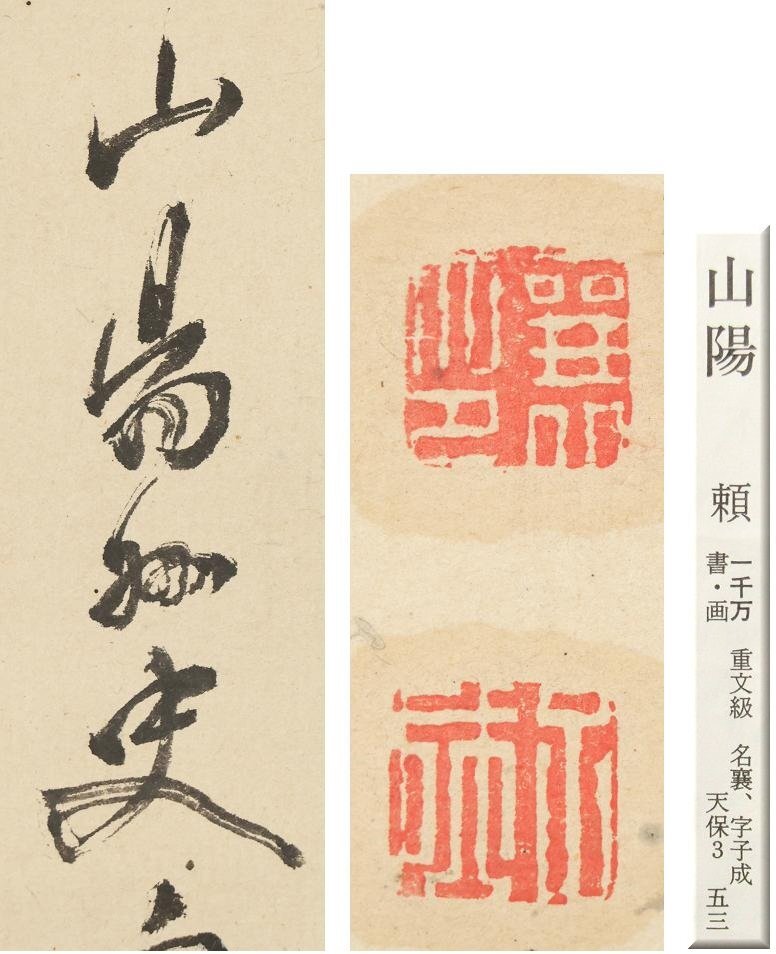 山陽外史
山陽 頼
一千万 重文級 名襄、字子成
書・画 天保3 五三